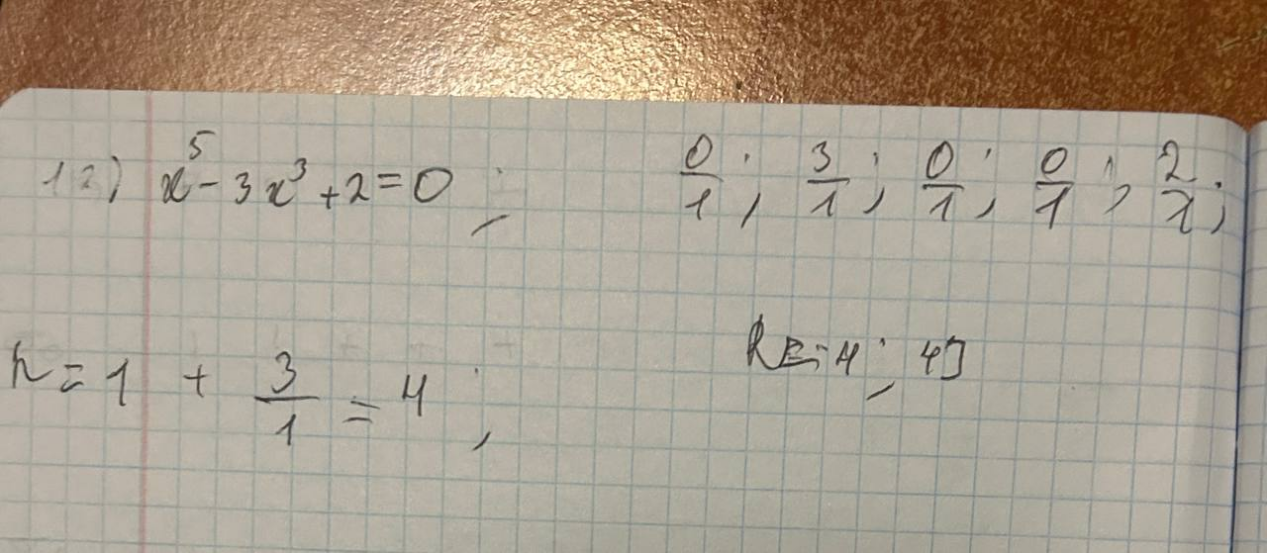 12) x⁵ - 3x³ + 2 = 0 ; 0/1 ; 3/1 ; 0/1 ; 0/1 ; 2/1 ;
h = 1 + 3/1 = 4 ; R[-4 ; 4]